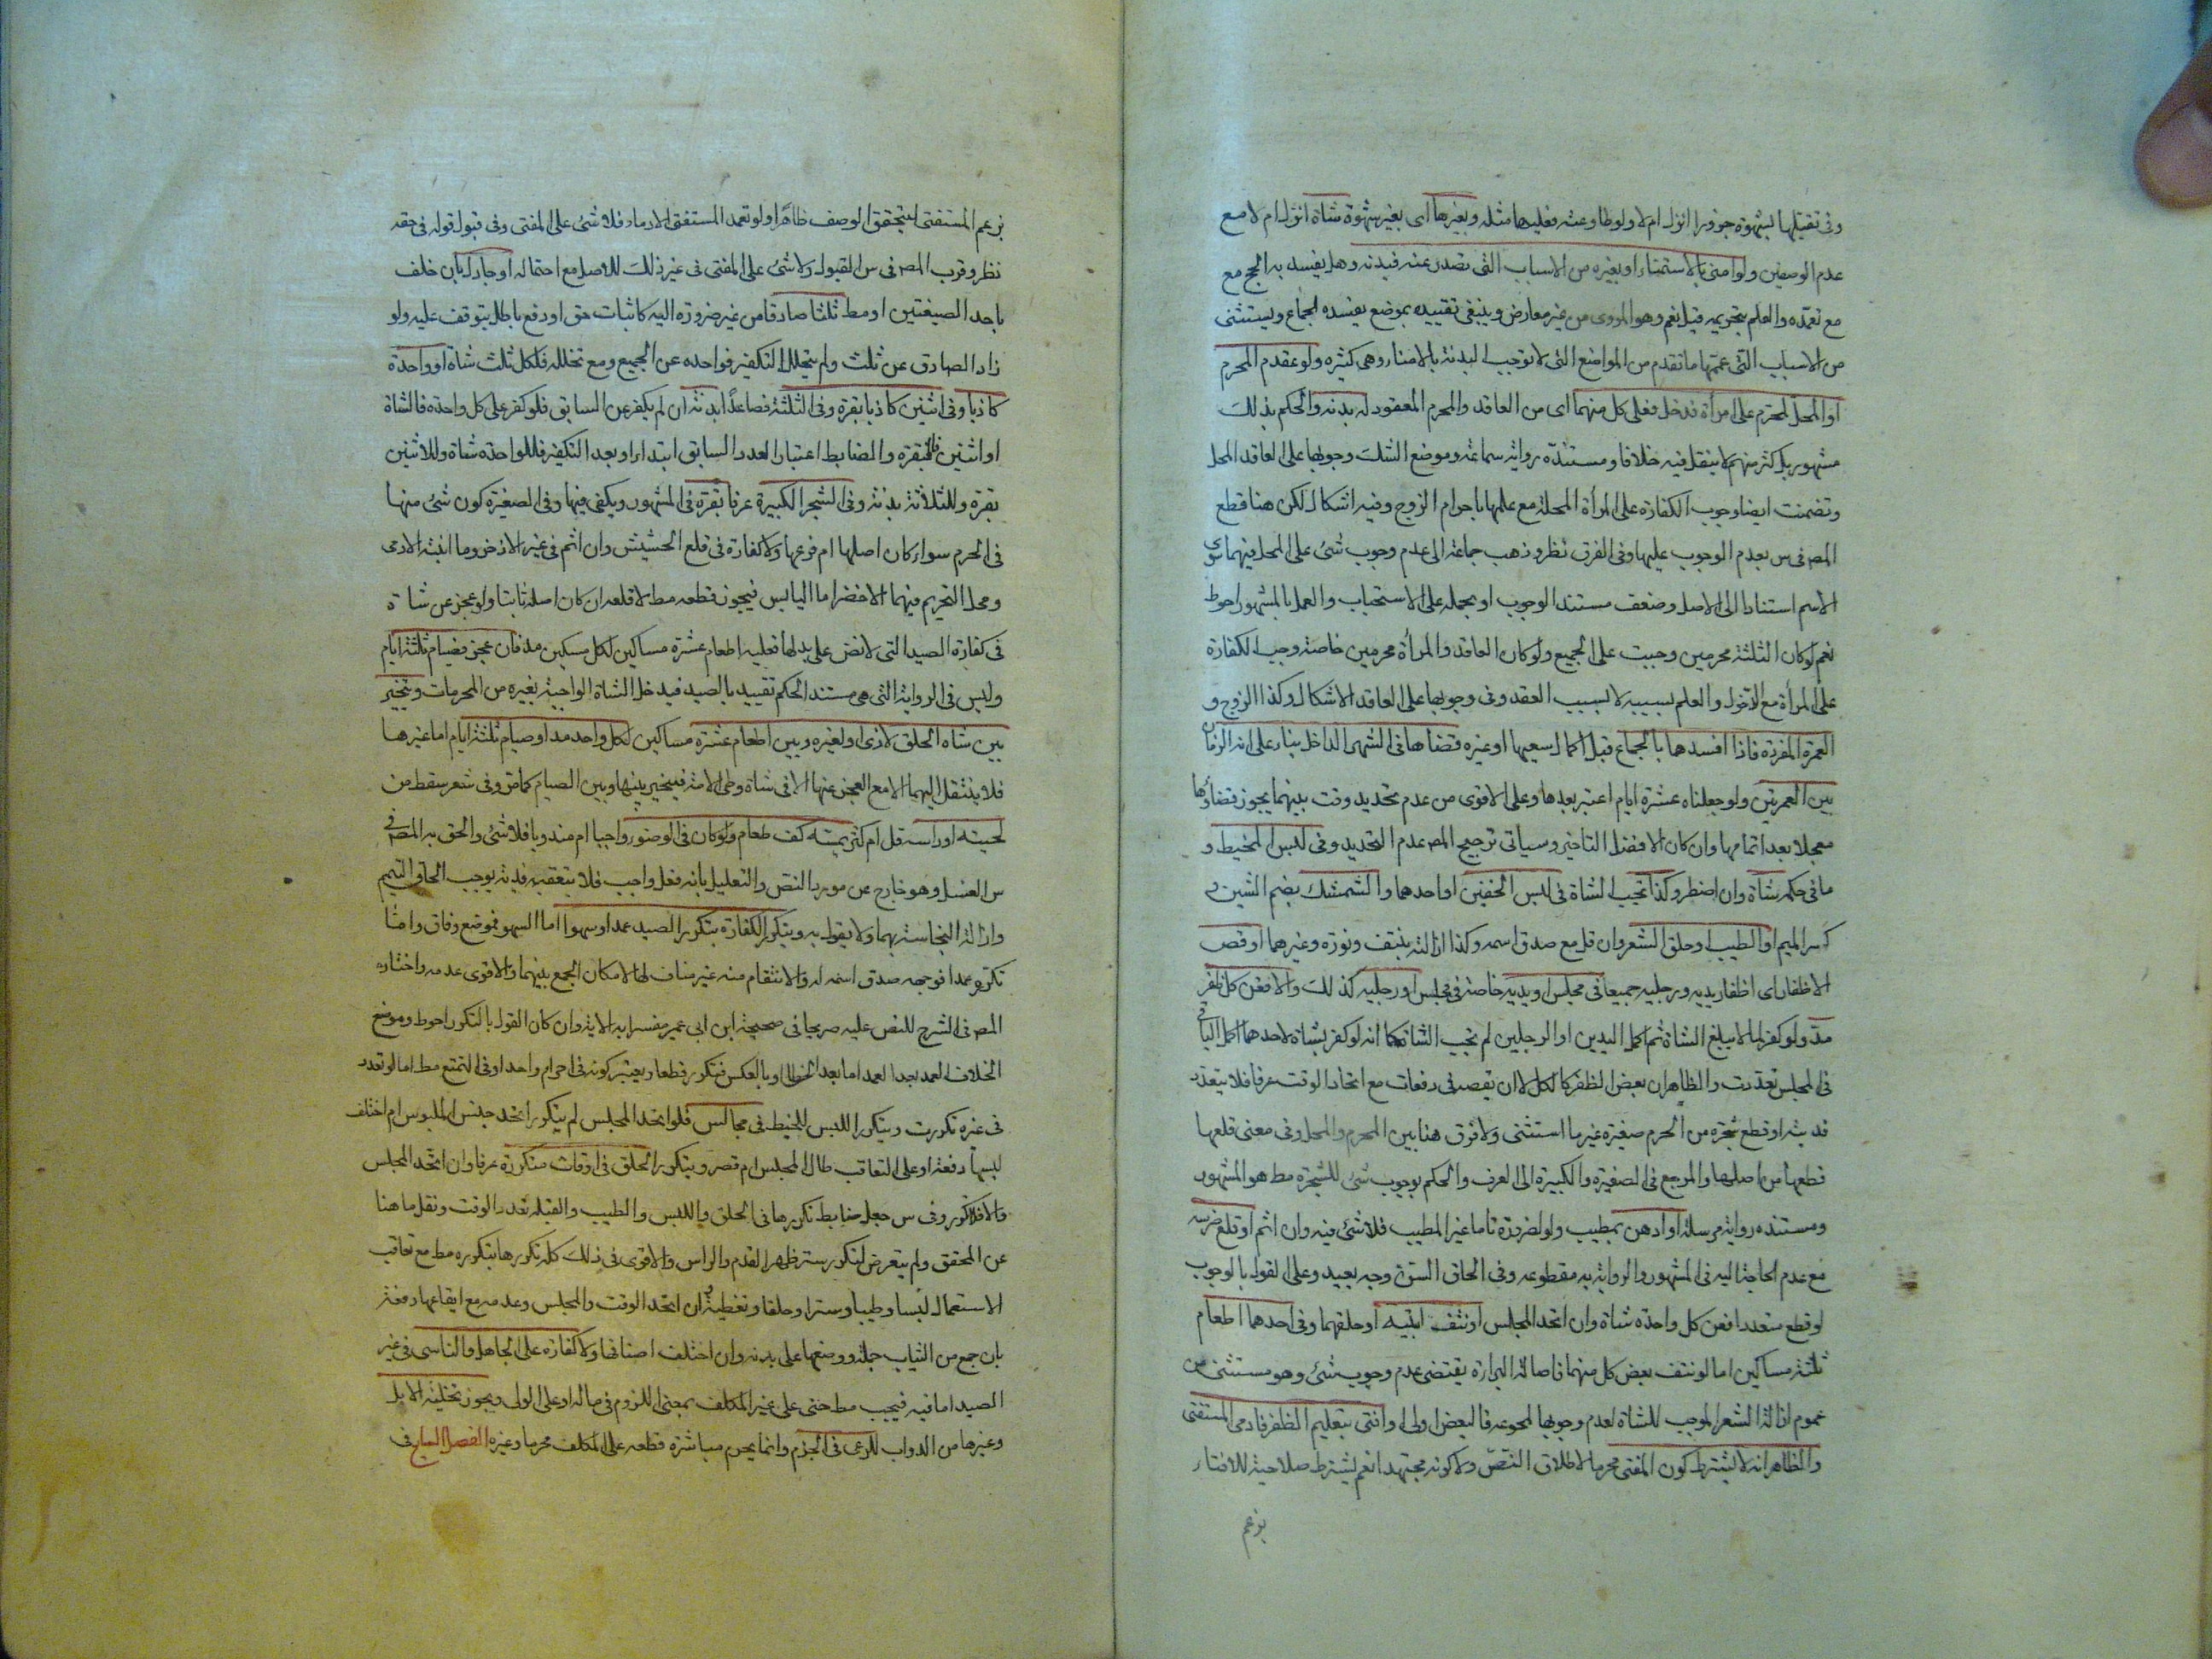 وفى تقبيلها بشهوة جزورا انزل ام لا ولو طاوعته فعليها مثله وبغيرها اى بغير شهوة شاة انزل ام لا مع
عدم الوصفين ولو امنى بالاستمناء او بغيره من الاسباب التى تصدر عنه فبدنة وهل يفسد به الحج مع
مع تعمده والعلم بتحريمه قيل نعم وهو المروى من غير معارض وينبغى تقييده بموضع يفسده الجماع ويستثنى
من الاسباب التى عممها ما تقدم من المواضع التى لا توجب البدنة بالامناء وهى كثيرة ولو عقد م المحرم
او المحل لمحرم على امرأة فدخل فعلى كل منهما اى من العاقد والمحرم المعقود له بدنة والحكم بذلك
مشهور بل كثير منهم لا ينقل فيه خلافا ومستنده رواية سماعة وموضع الشك وجوبها على العاقد المحل
وتضمنت ايضا وجوب الكفارة على المرأة المحلة مع علمها باحرام الزوج وفيه اشكال لكن هنا قطع
المص فى س بعدم الوجوب عليها وفى الفرق نظر وذهب جماعة الى عدم وجوب شئ على المحل فيهما سوى
الاسم استنادا الى الاصل وضعف مستند الوجوب او بحمله على الاستحباب والعمل بالمشهور احوط
نعم لو كان الثلثة محرمين وجبت على الجميع ولو كان العاقد والمرأة محرمين خاصة وجب الكفارة
على المرأة مع الدخول والعلم بسببه لا بسبب العقد وفى وجوبها على العاقد الاشكال وكذا الزوج و
العمرة المفردة فاذا افسدها بالجماع قبل اكمال سعيها او غيره قضاها فى الشهر الداخل بناء على انه الزمان
بين العمرتين ولو جعلناه عشرة ايام اعتبر بعدها وعلى الاقوى من عدم تحديد وقت بينهما يجوز قضاؤها
معجلا بعد اتمامها وان كان الافضل التاخير وسياتى ترجيح المص عدم التحديد وفى لبس المخيط و
ما فى حكمه شاة وان اضطر وكذا تجب الشاة فى لبس الخفين او احدهما والشمشك بضم الشين و
كسر الميم او الطيب او حلق الشعر وان قل مع صدق اسمه وكذا ازالته بنتف ونورة وغيرهما او قص
الاظفار اى اظفار يديه ورجليه جميعا فى مجلس او يديه خاصة فى مجلس او رجليه كذلك والا فعن كل ظفر
مد ولو كفر لما لا يبلغ الشاة ثم اكمل اليدين او الرجلين لم تجب الشاة كما انه لو كفر بشاة لاحدهما ثم اكمل الباقى
فى المجلس تعددت والظاهر ان بعض الظفر كالكل الا ان يقصه فى دفعات مع اتحاد الوقت عرفا فلا يتعدد
فديته او قطع شجرة من الحرم صغيرة غير ما استثنى ولا فرق هنا بين المحرم والمحل وفى معنى قلعها
قطعها من اصلها والمرجع فى الصغيرة والكبيرة الى العرف والحكم بوجوب شئ للشجرة مط هو المشهور
ومستنده رواية مرسلة او ادهن بمطيب ولو لضرورة اما غير المطيب فلا شئ فيه وان اثم او قلع ضرسه
مع عدم الحاجة اليه فى المشهور والرواية به مقطوعة وفى الحاق السن وجه بعيد وعلى القول بالوجوب
لو قطع متعددا فعن كل واحدة شاة وان اتحد المجلس او نتف ابطيه او حلقهما وفى احدهما اطعام
ثلثة مساكين اما لو نتف بعض كل منهما فاصالة البراءة يقتضى عدم وجوب شئ وهو مستثنى من
عموم ازالة الشعر الموجب للشاة لعدم وجوبها لمجموعه فالبعض اولى او افتى بتقليم الظفر فادمى المستفتى
والظاهر انه لا يشترط كون المفتى محرما لاطلاق النص ولا كونه مجتهدا نعم يشترط صلاحيته للافتاء
بزعم
بزعم المستفتى ليتحقق الوصف ظاهرا ولو تعمد المستفتى الادماء فلا شئ على المفتى وفى قبول قوله فى حقه
نظر وقرب المص فى س القبول ولا شئ على المفتى فى غير ذلك للاصل مع احتماله او جادل بان حلف
باحد الصيغتين او مط ثلثا صادقا من غير ضرورة اليه كاثبات حق او دفع باطل يتوقف عليه ولو
زاد الصادق عن ثلث ولم يتخلل التكفير فواحدة عن الجميع ومع تخلله فلكل ثلث شاة او واحدة
كاذبا وفى اثنين كاذبا بقرة وفى الثلثة فصاعدا بدنة ان لم يكفر عن السابق فلو كفر على كل واحدة فالشاة
او اثنين فالبقرة والضابط اعتبار العدد السابق ابتداء او بعد التكفير فللواحدة شاة وللاثنين
بقرة وللثلاثة بدنة وفى الشجر الكبيرة عرفا بقرة فى المشهور ويكفى فيها وفى الصغيرة كون شئ منها
فى الحرم سواء كان اصلها ام فرعها ولا كفارة فى قلع الحشيش وان اثم فى غير الاذخر وما انبته الادمى
ومحل التحريم فيهما الاخضر اما اليابس فيجوز قطعه مط لا قلعه ان كان اصله ثابتا ولو عجز عن شاة
فى كفارة الصيد التى لا نص على بدلها فعليه اطعام عشرة مساكين لكل مسكين مد فان عجز فصيام ثلثة ايام
وليس فى الرواية التى هى مستند الحكم تقييد بالصيد فيدخل الشاة الواجبة بغيره من المحرمات ويتخير
بين شاه الحلق لاذى او لغيره وبين اطعام عشرة مساكين لكل واحد مد او صيام ثلثة ايام اما غيرها
فلا ينتقل اليهما الا مع العجز عنها الا فى شاة وطى الامة فيتخير بينها وبين الصيام كما مر وفى شعر سقط من
لحيته او راسه قل ام كثر بمسه كف طعام ولو كان فى الوضوء واجبا ام مندوبا فلا شئ والحق به المص فى
س الغسل وهو خارج عن مورد النص والتعليل بانه فعل واجب فلا يتعقبه فدية يوجب الحاق التيمم
وازالة النجاسة بهما ولا يقول به ويتكرر الكفارة بتكرر الصيد عمدا او سهوا اما السهو فموضع وفاق واما
تكرره عمدا فوجهه صدق اسمه له والانتقام منه غير مناف لها لامكان الجمع بينهما والاقوى عدمه واختاره
المص فى الشرح للنص عليه صريحا فى صحيحة ابن ابى عمير مفسرا به الاية وان كان القول بالتكرر احوط وموضع
الخلاف العمد بعد العمد اما بعد الخطا او بالعكس فيتكرر قطعا ويعتبر كونه فى احرام واحد او فى التمتع مط اما لو تعدد
فى غيره تكررت ويتكرر اللبس للمخيط فى مجالس فلو اتحد المجلس لم يتكرر اتحد جنس الملبوس ام اختلف
لبسها دفعة او على التعاقب طال المجلس ام قصر ويتكرر الحلق فى اوقات متكررة عرفا وان اتحد المجلس
والا فلا تكرر وفى س جعل ضابط تكررها فى الحلق واللبس والطيب والقبلة تعدد الوقت ونقل ما هنا
عن المحقق ولم يتعرض لتكرر ستر ظهر القدم والراس والاقوى فى ذلك كله تكررها بتكرره مط مع تعاقب
الاستعمال لبسا وطيبا وسترا وحلقا وتغطية وان اتحد الوقت والمجلس وعدمه مع ايقاعها دفعة
بان جمع من الثياب جملة ووضعها على بدنه وان اختلف اصنافها ولا كفارة على الجاهل والناسى فى غير
الصيد اما فيه فيجب مط حتى على غير المكلف بمعنى اللزوم فى ماله او على الولى ويجوز تخلية الابل
وغيرها من الدواب للرعى فى الحرم وانما يحرم مباشرة قطعه على المكلف محرما وغيره الفصل السابع فى